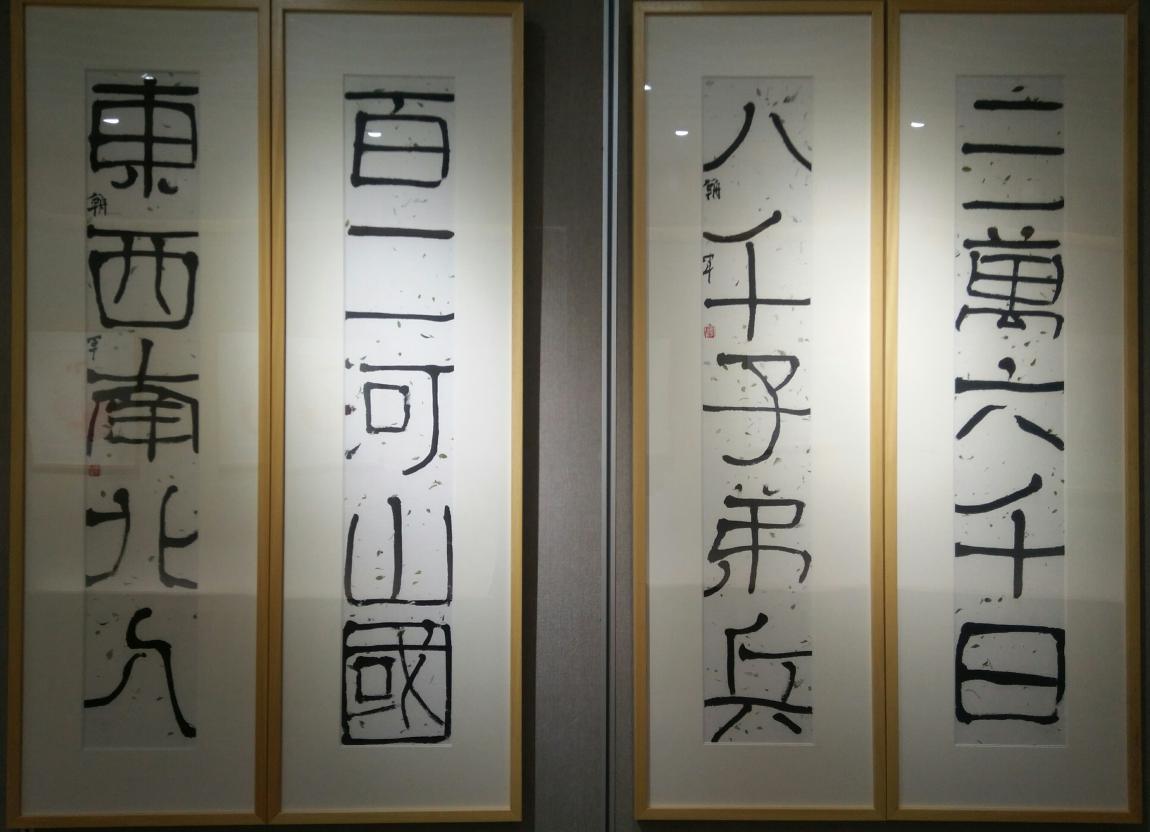 三萬六千日
八千子弟兵
朝军
百二河山國
東西南北人
朝军